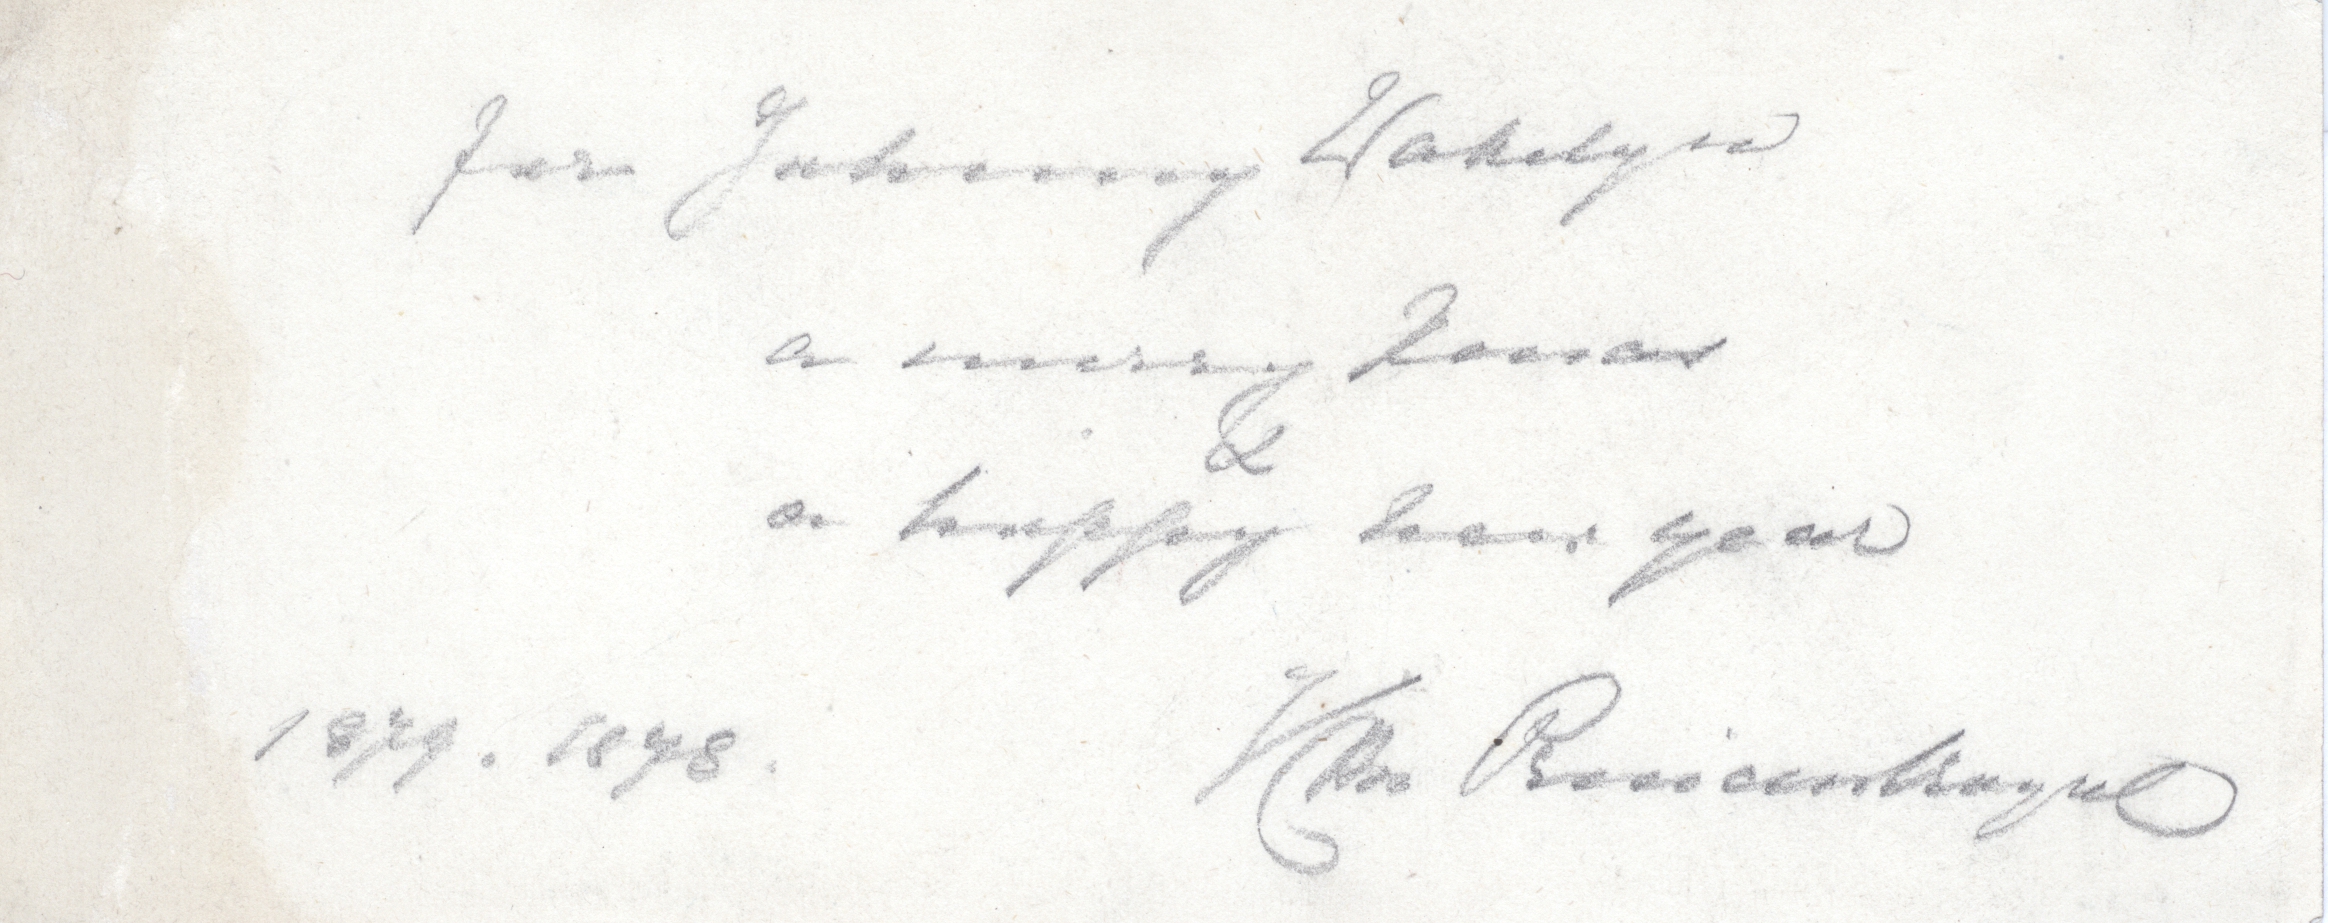 for Johnny Wakelyn
a merry Xmas
&
a happy new year
1879. 1878. Wm